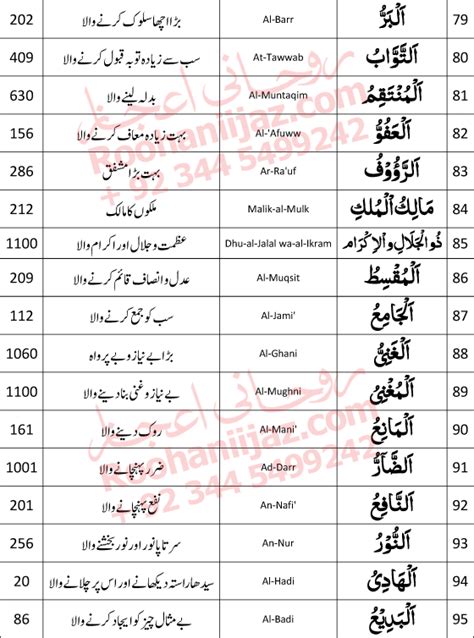 202 بڑا اچھا سلوک کرنے والا Al-Barr اَلْبَرُّ 79
409 سب سے زیادہ توبہ قبول کرنے والا At-Tawwab اَلتَّوَّابُ 80
630 بدلہ لینے والا Al-Muntaqim اَلْمُنْتَقِمُ 81
156 بہت زیادہ معاف کرنے والا Al-'Afuww اَلْعَفُوُّ 82
286 بہت بڑا مشفق Ar-Ra'uf اَلرَّؤُوْفُ 83
212 ملکوں کا مالک Malik-al-Mulk مَالِكُ الْمُلْكِ 84
1100 عظمت و جلال اور اکرام والا Dhu-al-Jalal wa-al-Ikram ذُوالْجَلَالِ وَالْاِكْرَام 85
209 عدل و انصاف قائم کرنے والا Al-Muqsit اَلْمُقْسِطُ 86
112 سب کو جمع کرنے والا Al-Jami' اَلْجَامِعُ 87
1060 بڑا بے نیاز و بے پرواہ Al-Ghani اَلْغَنِيُّ 88
1100 بے نیاز و غنی بنا دینے والا Al-Mughni اَلْمُغْنِيُ 89
161 روک دینے والا Al-Mani' اَلْمَانِعُ 90
1001 ضرر پہنچانے والا Ad-Darr اَلضَّارُّ 91
201 نفع پہنچانے والا An-Nafi' اَلنَّافِعُ 92
256 سرتاپا نور اور نور بخشنے والا An-Nur اَلنُّوْرُ 93
20 سیدھا راستہ دیکھانے اور اس پر چلانے والا Al-Hadi اَلْهَادِيُ 94
86 بے مثال چیز کو ایجاد کرنے والا Al-Badi اَلْبَدِيْعُ 95
روحانی اعجاز
Roohaniijaz.com
+ 92 344 5499242
روحانی اعجاز
Roohaniijaz.com
+ 92 344 5499242